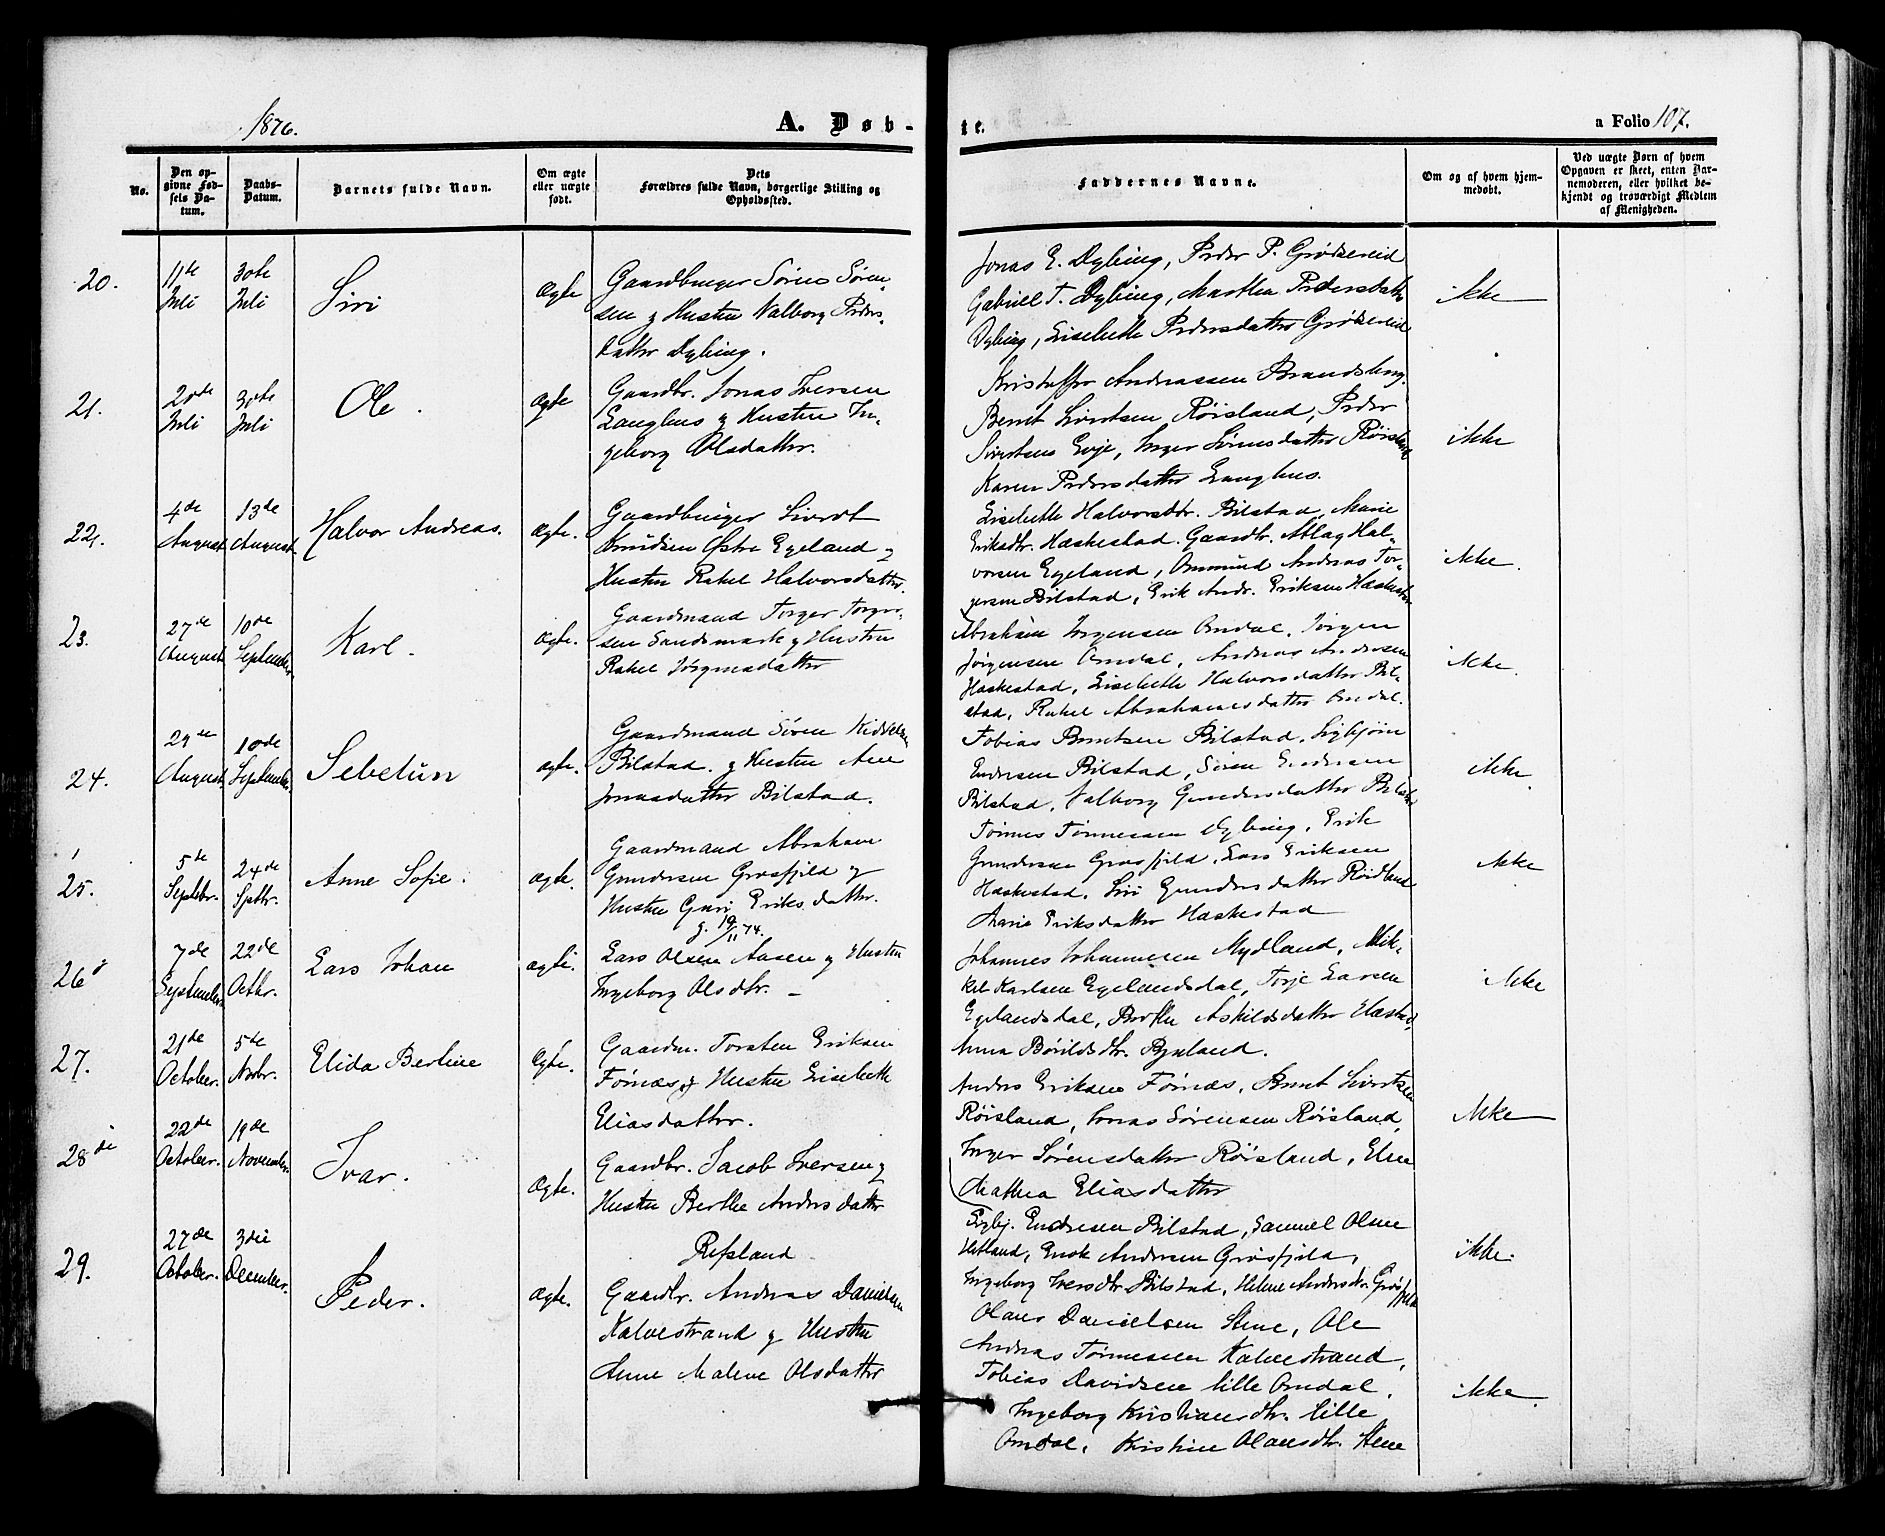 1876.
A. Døb-
te.
a Folio 107.
No.
Den op-
givne Fød-
sels Da-
tum.
Daabs-
Datum.
Barnets fulde Navn.
Om ægte
eller uægte
født.
Dets
Forældres fulde Navn, borgerlige Stilling og
Opholdssted.
Faddernes Navne.
Om og af hvem hjem-
medøbt.
Ved uægte Børn af hvem
Opgaven er skeet, enten Bar-
nemoderen, eller hvilket be-
kjendt og troværdigt Medlem
af Menigheden.
20.
11te
Juli
30te
Juli
Siri
Ægte
Gaardbruger Sørens Søren-
sen g Hustru Valborg Peders-
datter Dybing.
Jonas E. Dybing, Peder P. Grødereid
Gabriel T. Dybing, Marthea Pedersdatter
Dybing, Lisebeth Pedersdatter Grødereid
ikke
21.
20de
Juli
30te
Juli
Ole.
Ægte
Gaardbr. Jonas Iversen
Langhus g Hustru In-
geborg Olsdatter.
Kristoffer Andreassen Brandsberg.
Berent Sivertsen Røisland, Peder
Sivertsens Evje, Inger Sørensdatter Røisland
Karen Pedersdatter Langhus.
ikke
22.
4de
August
13de
August
Halvor Andreas.
Ægte.
Gaardbruger Sivert
Knudsen Østre Egeland g
Hustru Rakel Halvorsdatter
Lisebeth Halvorsdtr. Bilstad, Marie
Eriksdtr. Hæskestad. Gaardbr. Atlag Hal-
vorsen Egeland, Ommund Andreas Tor-
gersen Bilstad, Erik Andr. Eriksen Hæskestad
ikke.
23.
27de
August
10de
September
Karl.
Ægte.
Gaardmand Torger Torger-
sen Sandsmark g Hustru
Rakel Jørgensdatter
Abraham Jørgensen Omdal, Jørgen
Jørgensen Omdal, Andreas Andersen
Hæskestad, Lisebeth Halvorsdatter Bil-
stad, Rakel Abrahamsdatter Omdal.
ikke.
24.
29de
August
10de
September
Sebelün
Ægte.
Gaardmand Søren Kiddelsen
Bilstad. g Hustru Ane
Jonasdatter Bilstad.
Tobias Berntsen Bilstad, Sigbjørn
Endresen Bilstad, Søren Endresen
Bilstad, Valborg Gundersdatter Bilstad
ikke.
25.
5te
Septebr.
24de
Septbr.
Anne Sofie.
Ægte.
Gaardmand Abraham
Gundersen Grøsfjeld g
Hustru Guri Eriksdatter.
g. 19/11 74.
Tønnes Tønnessen Dybing, Erik
Gundersen Grøsfjeld, Lars Eriksen
Hæskestad, Siri Gundersdatter Røidland
Maria Eriksdatter Hæskestad
ikke
26
7de
September.
22de
Octbr.
Lars Johan
Ægte.
Lars Olsen Aasen g Hustru
Ingeborg Olsdtr. -
Johannes Johannesen Mydland, Mik-
kel Karlsen Egelandsdal, Torje Larsen
Egelandsdal, Berthe Askildsdatter Hæstad,
Anna Bårildsdtr. Ryeland.
ikke
27.
21de
October.
5te
Novbr.
Elida Bertine
Ægte.
Gaardm. Torsten Eriksen
Førnæs g Hustru Lisebeth
Eliasdatter.
Anders Eriksen Førnæs, Bernt Sivertsen
Røisland, Jonas Sørensen Røisland,
Inger Sørensdatter Røisland, Elen
Mathea Eliasdatter
ikke
28de
22de
October.
19de
November.
Ivar.
Ægte.
Gaardbr. Jacob Iversen g
Hustru Berthe Andersdatter
Refsland
Sigbj. Endresen Bilstad, Samuel Olsen
Hetland, Enok Andersen Grøsfjeld,
Ingeborg Iversdtr. Bilstad, Helene Andersdtr. Grøsfjeld
ikke.
29.
27de
October.
3die
December.
Peder.
Ægte.
Gaardbr. Andreas Danielsen
Kalvestrand g Hustru
Anne Malene Olsdatter
Olaus Danielsen Stene, Ole
Andreas Tønnessen Kalvestrand,
Tobias Davidsen lille Omdal,
Ingeborg Kristiansdtr. lille
Omdal, Kristine Olausdtr. Stene
ikke.